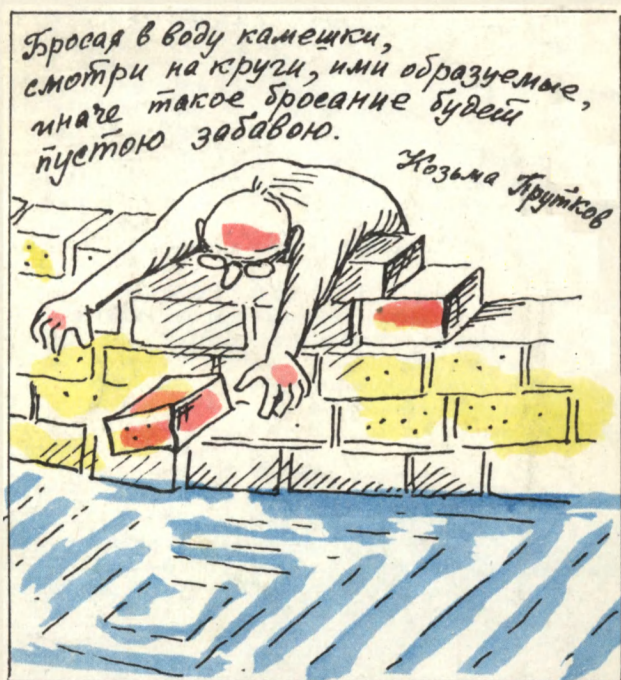 Бросая в воду камешки,
смотри на круги, ими образуемые,
иначе такое бросание будет
пустою забавою.
Козьма Прутков